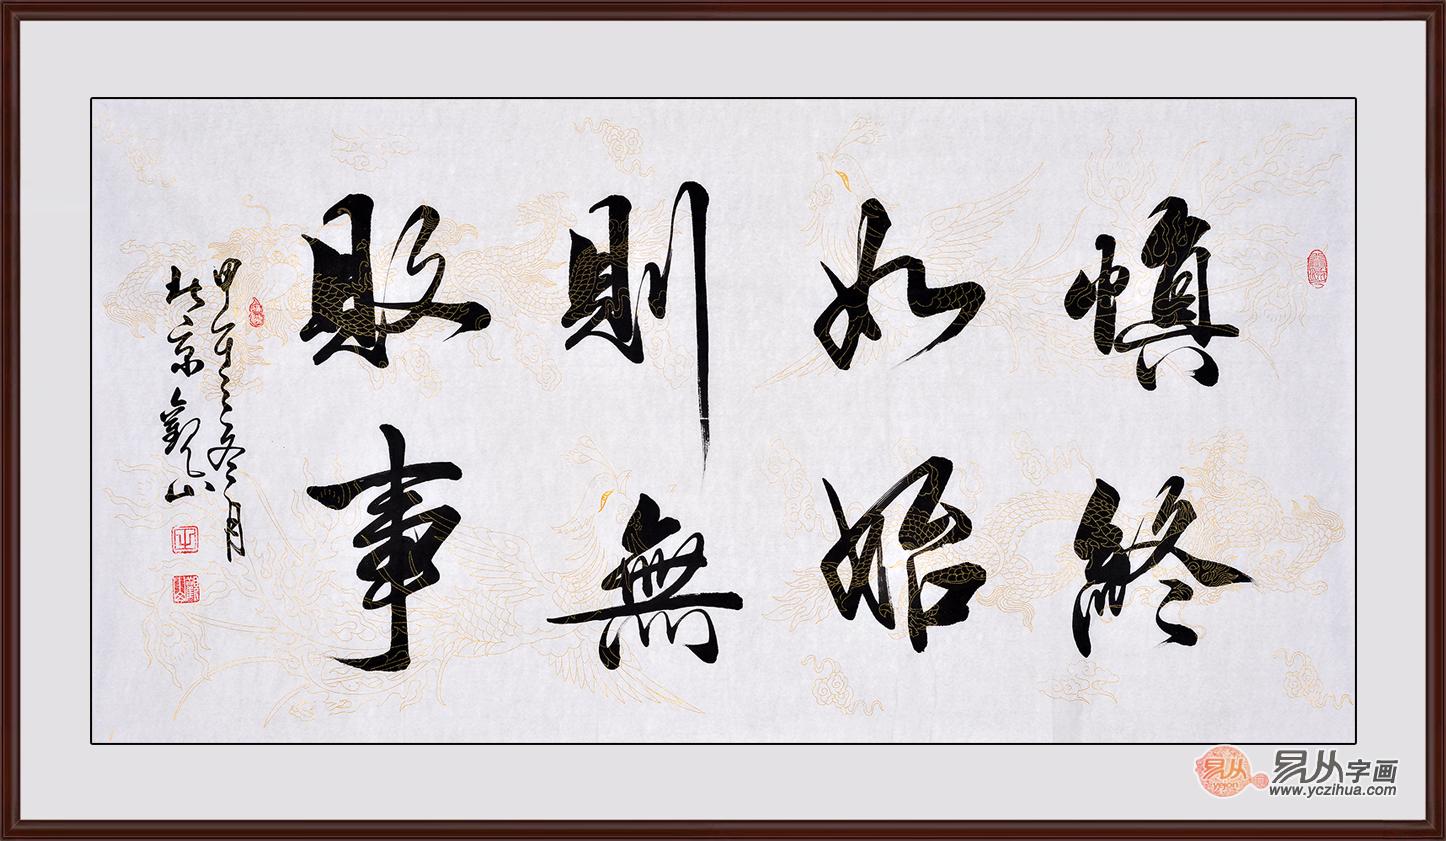 慎終
如始
則無
敗事
甲午之冬月
北京觀山
易从字画
www.yczihua.com